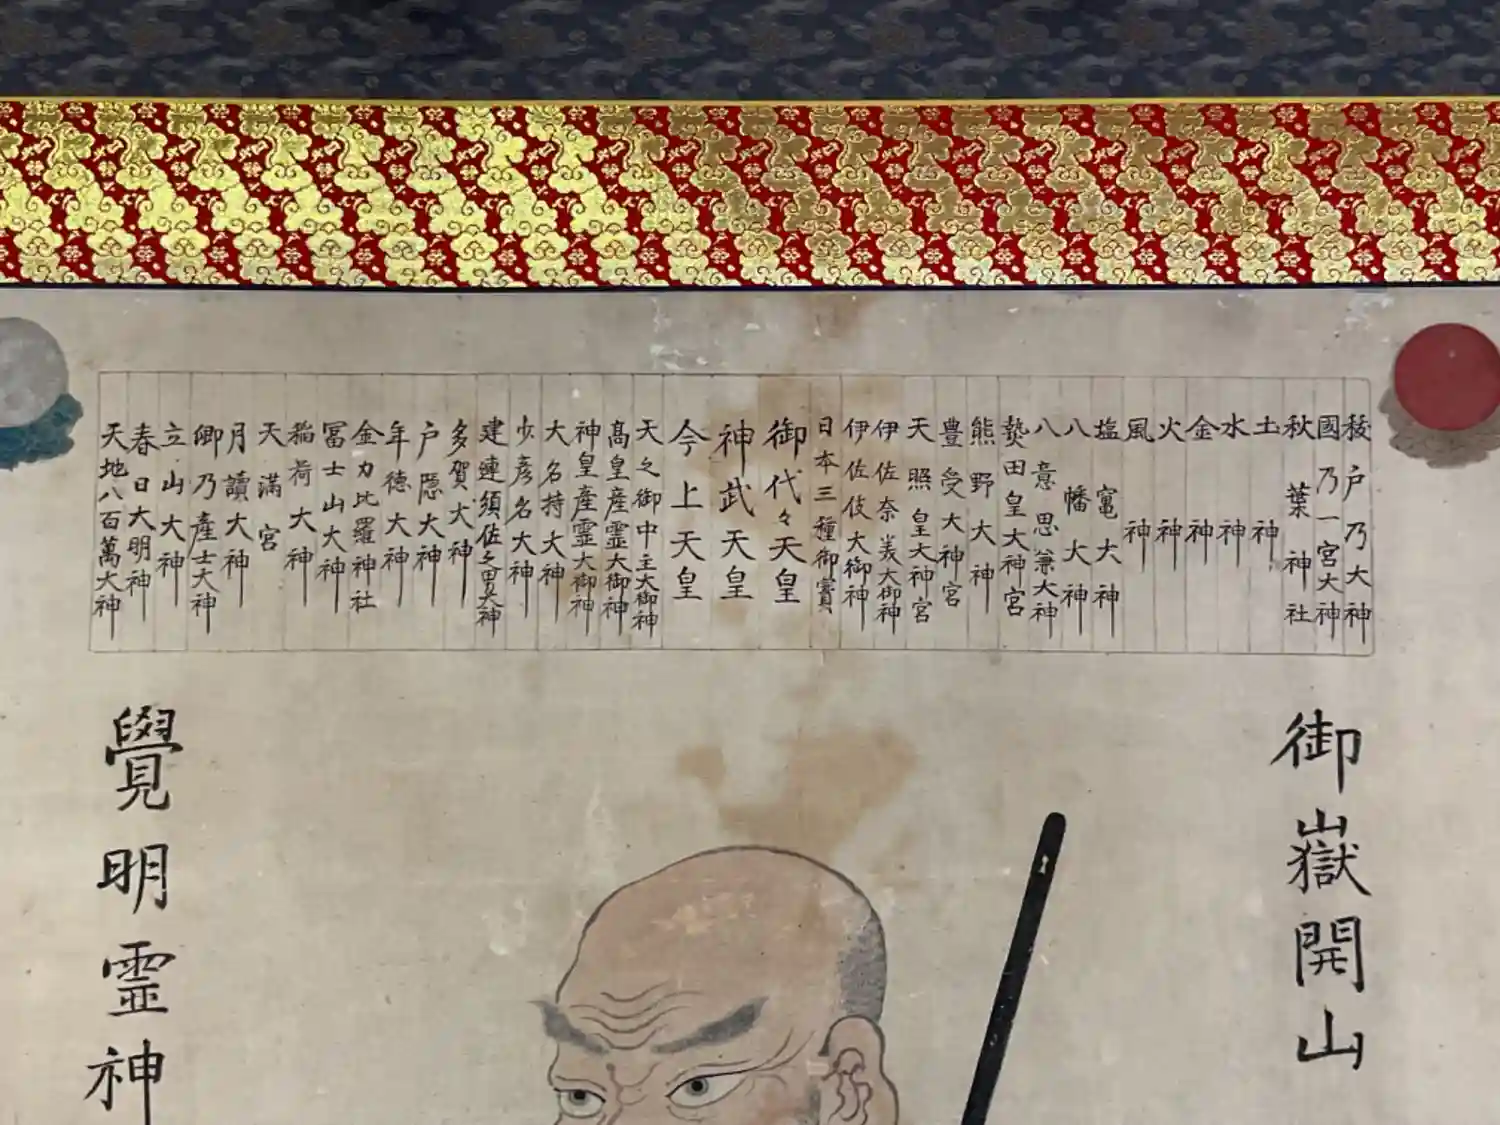 祓戸乃大神
國乃一宮大神
秋葉神社
土神
水神
金神
火神
風神
塩竃大神
八幡大神
八意思兼大神
熱田皇大神宮
熊野大神
豊受大神宮
天照皇大神宮
伊佐奈美大御神
伊佐伎大御神
日本三種御寳
御代々天皇
神武天皇
今上天皇
天之御中主大御神
高皇産霊大御神
神皇産霊大御神
大名持大神
少彦名大神
建連須佐之男大神
多賀大神
戸隠大神
年德大神
金力比羅神社
冨士山大神
稲荷大神
天満宮
月讀大神
御乃產士大神
立山大神
春日大明神
天地八百萬大神
御嶽開山
覺明霊神